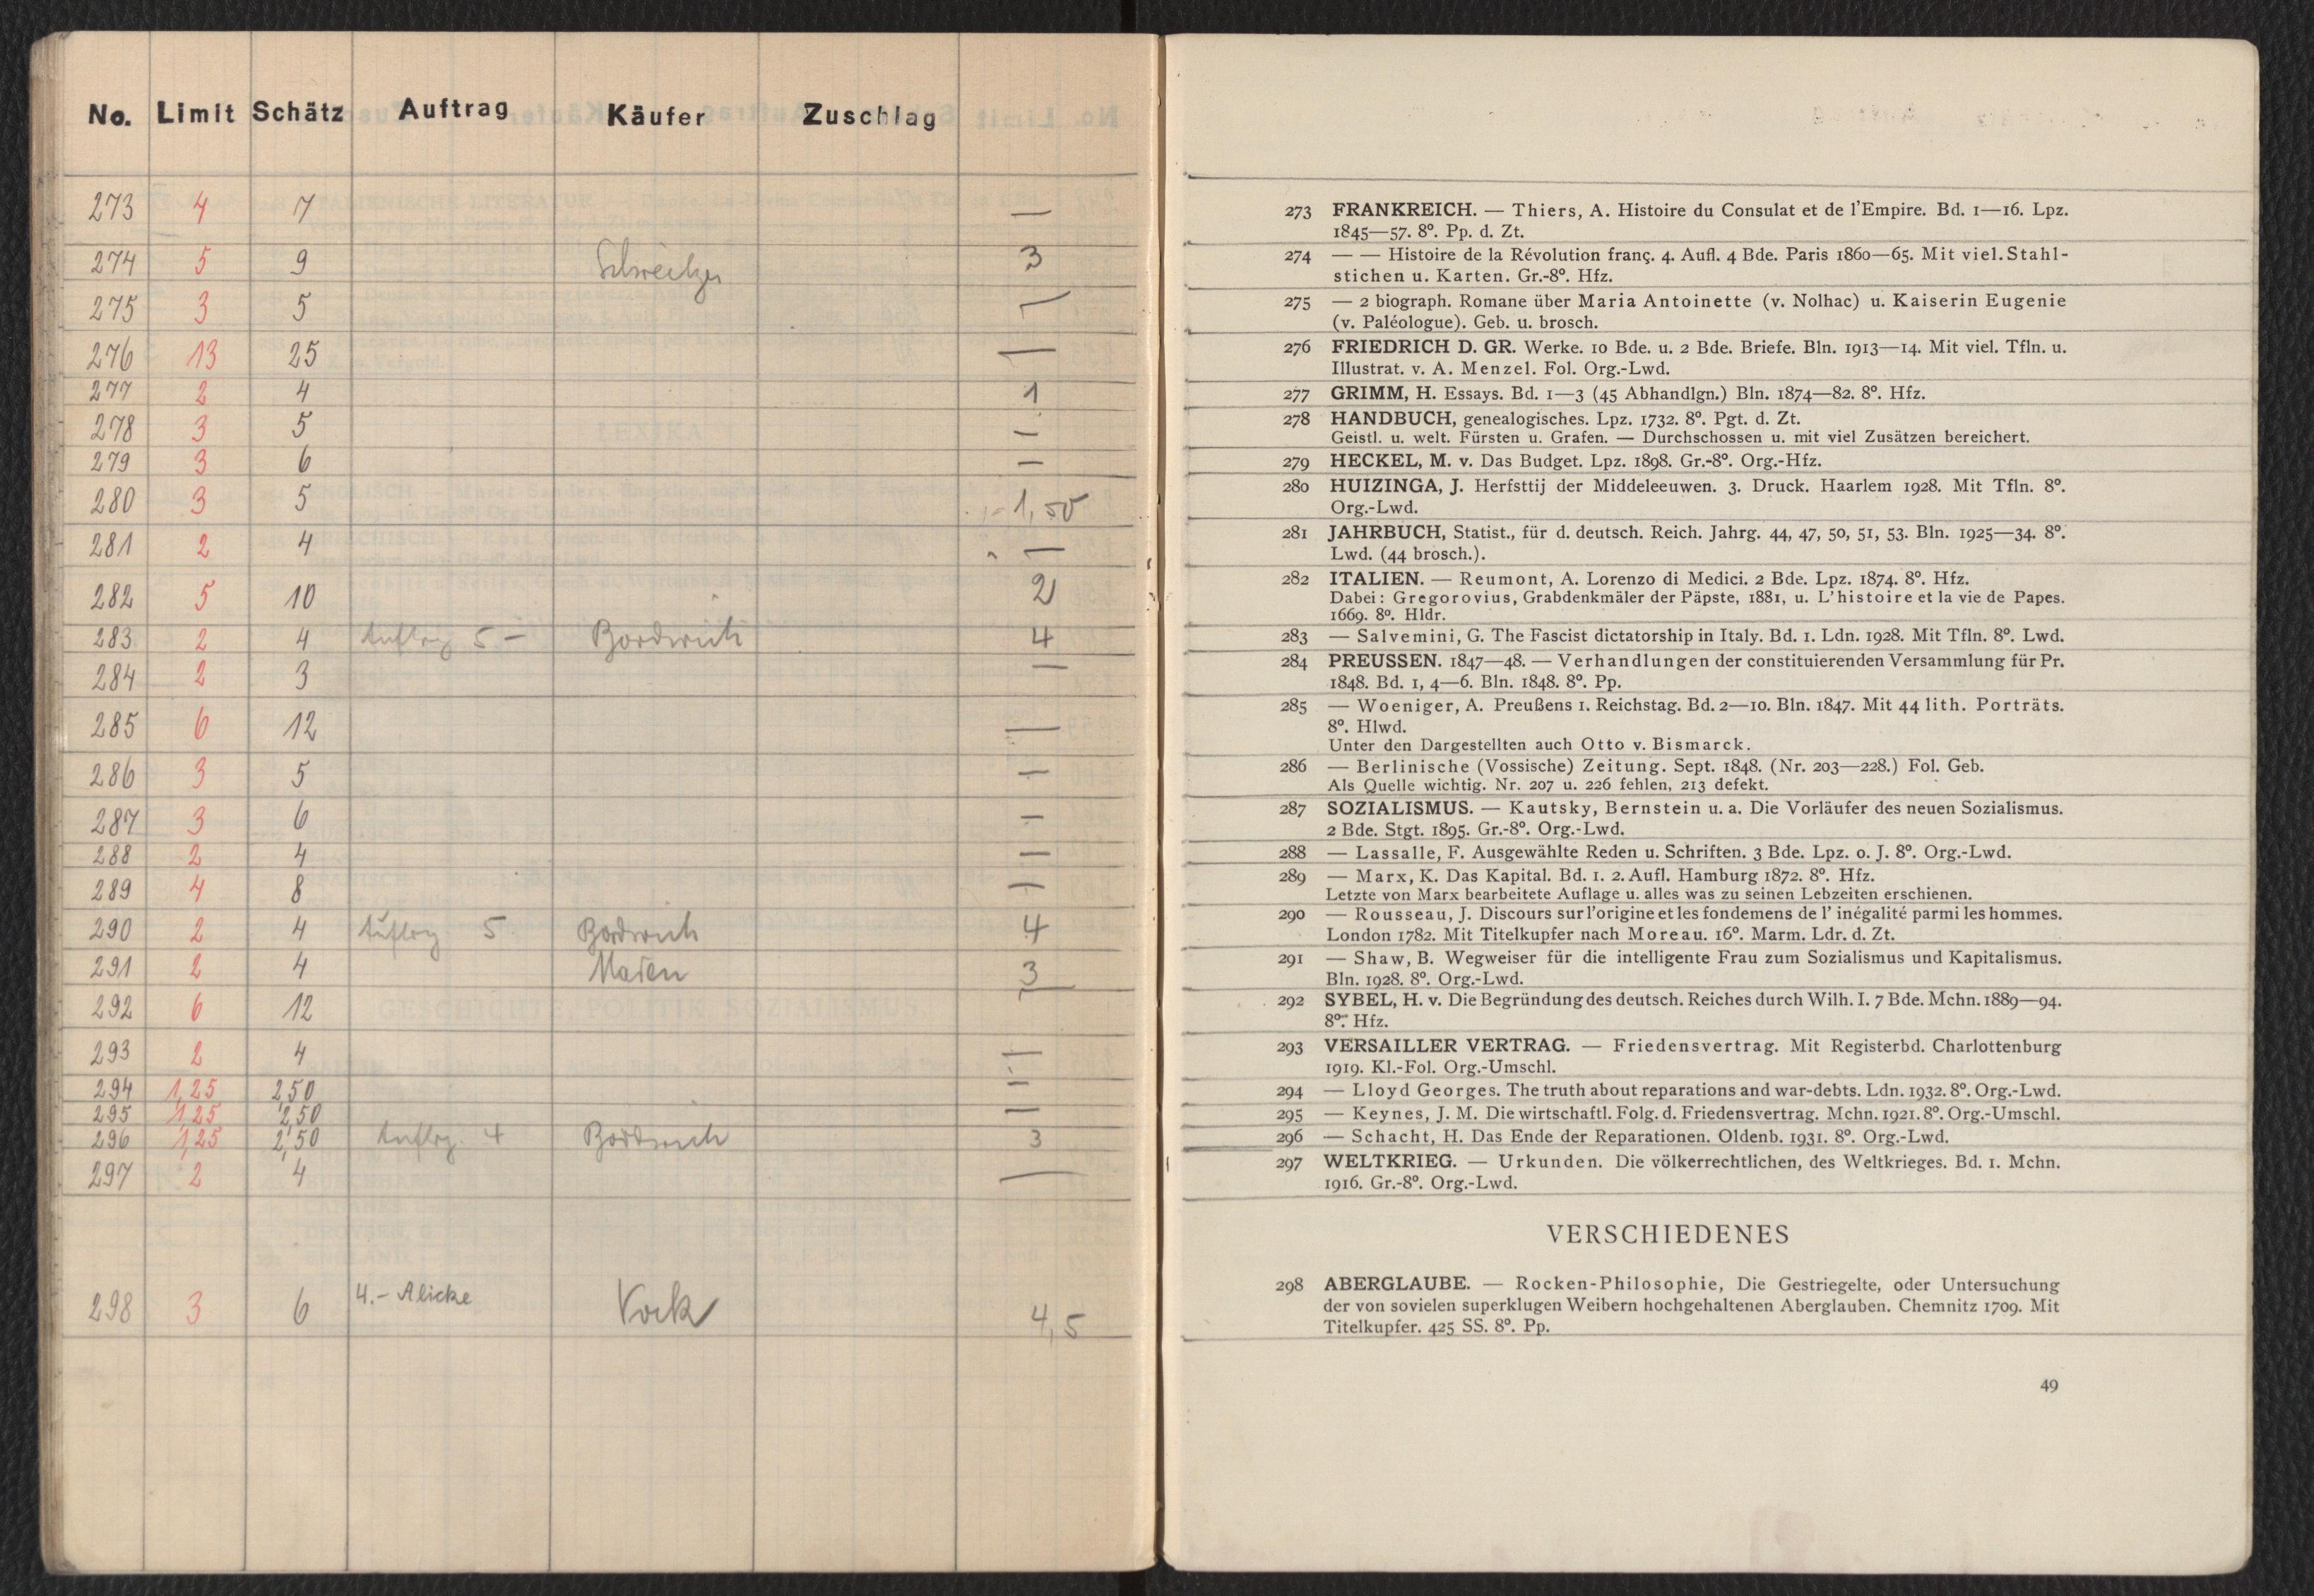 No. Limit Schätz Auftrag Käufer Zuschlag
273 4 7 —
274 5 9 Schweitzer 3
275 3 5 —
276 13 25 —
277 2 4 1
278 3 5 —
279 3 6 —
280 3 5 1,50
281 2 4 —
282 5 10 2
283 2 4 Auftrag 5 – 4
284 2 3 —
285 6 12 —
286 3 5 —
287 3 6 —
288 2 4 —
289 4 8 —
290 2 4 Auftrag 5 4
291 2 4 3
292 6 12 —
293 2 4 —
294 1,25 2,50 —
295 1,25 2,50 —
296 1,25 2,50 Auftrg. 4 3
297 2 4 —
298 3 6 4.– Alicke Vock 4,5
273 FRANKREICH. — Thiers, A. Histoire du Consulat et de l'Empire. Bd. 1—16. Lpz.
1845—57. 8º. Pp. d. Zt.
274 — — Histoire de la Révolution franç. 4. Aufl. 4 Bde. Paris 1860—65. Mit viel. Stahl-
stichen u. Karten. Gr.-8º. Hfz.
275 — 2 biograph. Romane über Maria Antoinette (v. Nolhac) u. Kaiserin Eugenie
(v. Paléologue). Geb. u. brosch.
276 FRIEDRICH D. GR. Werke. 10 Bde. u. 2 Bde. Briefe. Bln. 1913—14. Mit viel. Tfln. u.
Illustrat. v. A. Menzel. Fol. Org.-Lwd.
277 GRIMM, H. Essays. Bd. 1—3 (45 Abhandlgn.) Bln. 1874—82. 8º. Hfz.
278 HANDBUCH, genealogisches. Lpz. 1732. 8º. Pgt. d. Zt.
Geistl. u. welt. Fürsten u. Grafen. — Durchschossen u. mit viel Zusätzen bereichert.
279 HECKEL, M. v. Das Budget. Lpz. 1898. Gr.-8º. Org.-Hfz.
280 HUIZINGA, J. Herfsttij der Middeleeuwen. 3. Druck. Haarlem 1928. Mit Tfln. 8º.
Org.-Lwd.
281 JAHRBUCH, Statist., für d. deutsch. Reich. Jahrg. 44, 47, 50, 51, 53. Bln. 1925—34. 8º.
Lwd. (44 brosch.).
282 ITALIEN. — Reumont, A. Lorenzo di Medici. 2 Bde. Lpz. 1874. 8º. Hfz.
Dabei: Gregorovius, Grabdenkmäler der Päpste, 1881, u. L'histoire et la vie de Papes.
1669. 8º. Hldr.
283 — Salvemini, G. The Fascist dictatorship in Italy. Bd. 1. Ldn. 1928. Mit Tfln. 8º. Lwd.
284 PREUSSEN. 1847—48. — Verhandlungen der constituierenden Versammlung für Pr.
1848. Bd. 1, 4—6. Bln. 1848. 8º. Pp.
285 — Woeniger, A. Preußens 1. Reichstag. Bd. 2—10. Bln. 1847. Mit 44 lith. Porträts.
8º. Hlwd.
Unter den Dargestellten auch Otto v. Bismarck.
286 — Berlinische (Vossische) Zeitung. Sept. 1848. (Nr. 203—228.) Fol. Geb.
Als Quelle wichtig. Nr. 207 u. 226 fehlen, 213 defekt.
287 SOZIALISMUS. — Kautsky, Bernstein u. a. Die Vorläufer des neuen Sozialismus.
2 Bde. Stgt. 1895. Gr.-8º. Org.-Lwd.
288 — Lassalle, F. Ausgewählte Reden u. Schriften. 3 Bde. Lpz. o. J. 8º. Org.-Lwd.
289 — Marx, K. Das Kapital. Bd. 1. 2. Aufl. Hamburg 1872. 8º. Hfz.
Letzte von Marx bearbeitete Auflage u. alles was zu seinen Lebzeiten erschienen.
290 — Rousseau, J. Discours sur l'origine et les fondemens de l' inégalité parmi les hommes.
London 1782. Mit Titelkupfer nach Moreau. 16º. Marm. Ldr. d. Zt.
291 — Shaw, B. Wegweiser für die intelligente Frau zum Sozialismus und Kapitalismus.
Bln. 1928. 8º. Org.-Lwd.
292 SYBEL, H. v. Die Begründung des deutsch. Reiches durch Wilh. I. 7 Bde. Mchn. 1889—94.
8º. Hfz.
293 VERSAILLER VERTRAG. — Friedensvertrag. Mit Registerbd. Charlottenburg
1919. Kl.-Fol. Org.-Umschl.
294 — Lloyd Georges. The truth about reparations and war-debts. Ldn. 1932. 8º. Org.-Lwd.
295 — Keynes, J. M. Die wirtschaftl. Folg. d. Friedensvertrag. Mchn. 1921. 8º. Org.-Umschl.
296 — Schacht, H. Das Ende der Reparationen. Oldenb. 1931. 8º. Org.-Lwd.
297 WELTKRIEG. — Urkunden. Die völkerrechtlichen, des Weltkrieges. Bd. 1. Mchn.
1916. Gr.-8º. Org.-Lwd.
VERSCHIEDENES
298 ABERGLAUBE. — Rocken-Philosophie, Die Gestriegelte, oder Untersuchung
der von sovielen superklugen Weibern hochgehaltenen Aberglauben. Chemnitz 1709. Mit
Titelkupfer. 425 SS. 8º. Pp.
49